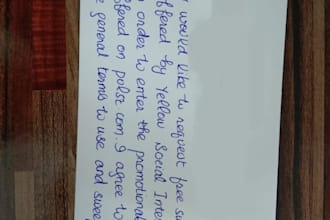 I would like to request free su
ffered by Yellow Social Inte
order to enter the promotional
ffered on pulsz.com. I agree to
general terms to use and swee